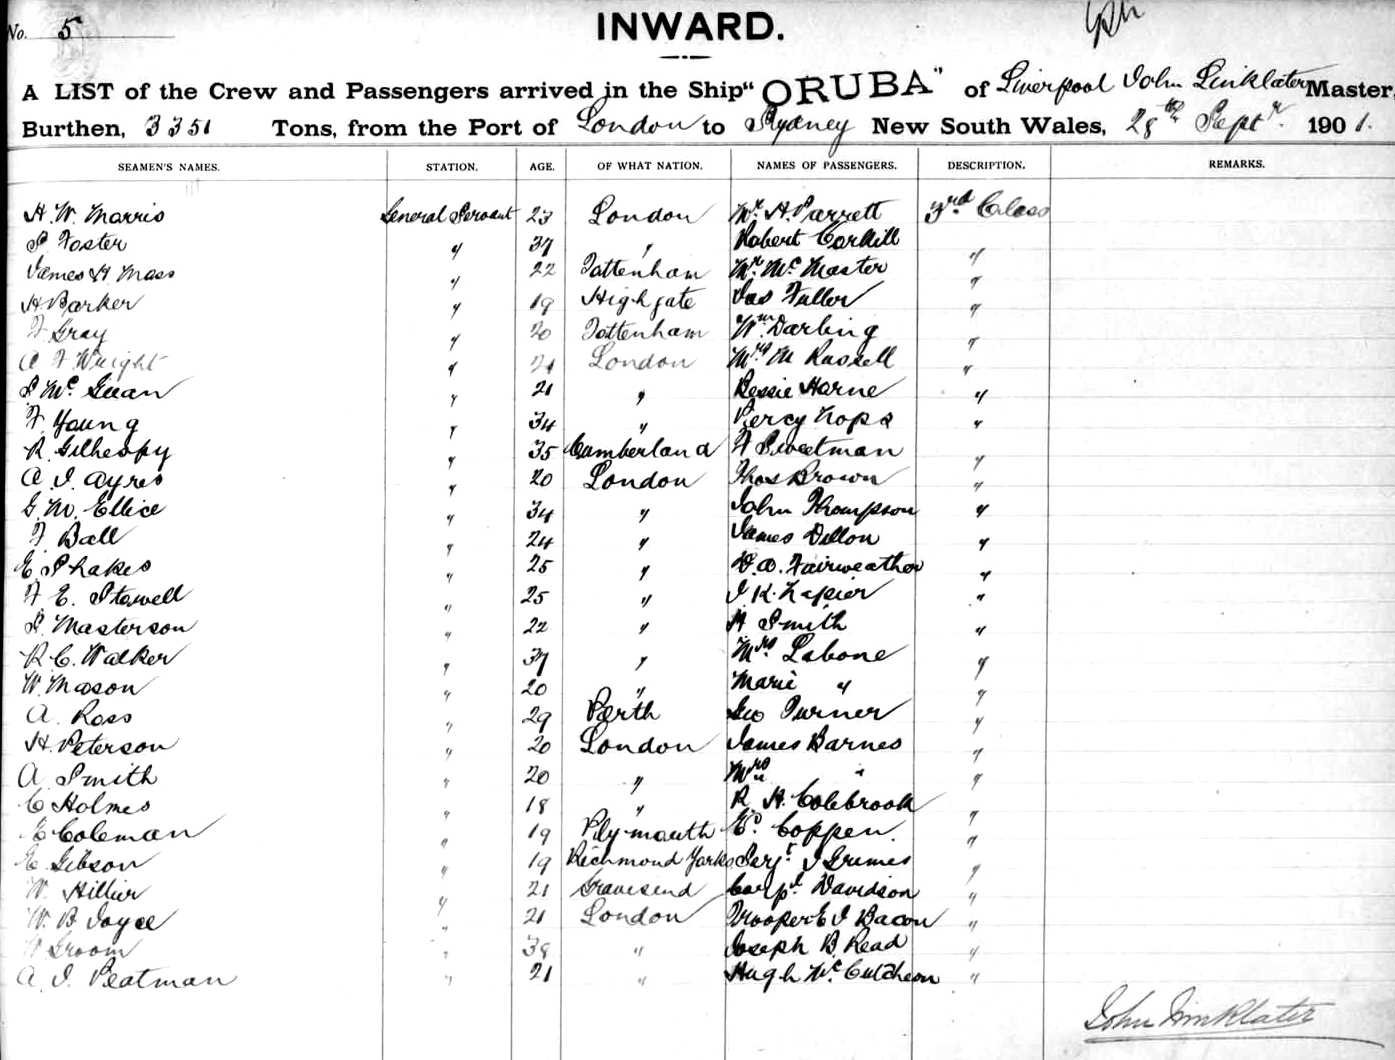 No. 5
INWARD.
A LIST of the Crew and Passengers arrived in the Ship "ORUBA" of Liverpool John Linklater Master,
Burthen, 3351 Tons, from the Port of London to Sydney New South Wales, 28th Septr. 1901.
SEAMEN'S NAMES. STATION. AGE. OF WHAT NATION. NAMES OF PASSENGERS. DESCRIPTION. REMARKS.
H. W. Morris General Servant 23 London Mr. H. Parrett 3rd Class
S Foster " 37 " Robert Corkill "
James H Mass " 22 Tottenham Mr. Mc Master "
H Barker " 19 Highgate Jas Fuller "
F Gray " 20 Tottenham Wm Darling "
A F Wright " 21 London Mrs M Russell "
S Mc Guan " 21 " Bessie Horne "
F Young " 34 " Percy Nops "
R. Gilhespy " 35 Cumberland F Sweetman "
A. J. Ayres " 20 London Thos Brown "
G. M. Ellice " 34 " John Thompson "
F Ball " 24 " James Dillon "
E Shakes " 25 " D. A. Fairweather "
F E. Stowell " 25 " J K. Napier "
S. Masterson " 22 " H Smith "
R C. Walker " 37 " Mrs Labone "
W. Mason " 20 " Marie " "
A. Ross " 29 Perth Geo Turner "
H. Peterson " 20 London James Barnes "
A Smith " 20 " Mrs " "
C Holmes " 18 " R. H. Colebrook "
E Coleman " 19 Plymouth Coppen "
E. Gibson " 19 Richmond Yorks Serjt. J Grimes "
W. Hillier " 21 Gravesend Corpl Davidson "
W. B Joyce " 21 London Trooper E J Bacon "
Groom " 38 " Joseph B. Read "
A. J. Peatman " 21 " Hugh Mc Cutcheon "
John Linklater